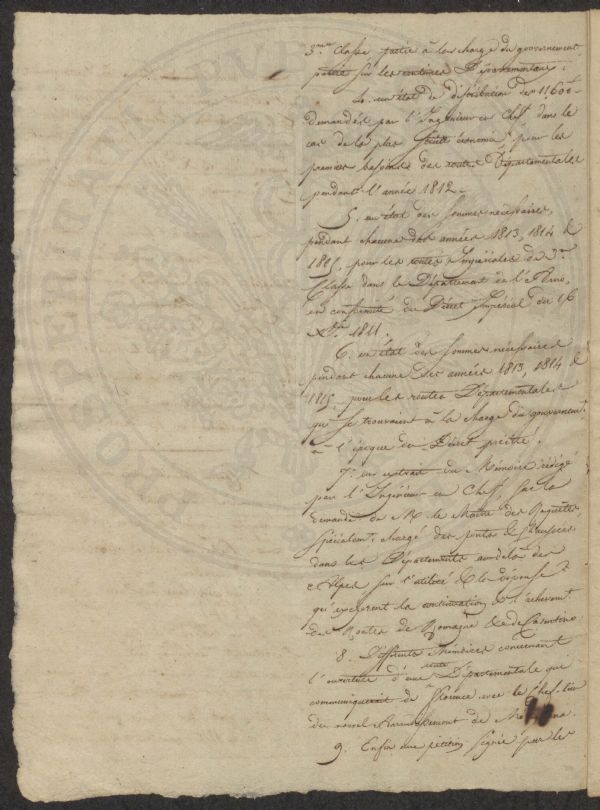 3.me Classe, partie à la charge du gouvernement
partie sur les centimes Départementaux;
4. un état de distribution des 11600 f
demandés par l'Ingénieur en Chef, dans le
cas de la plus stricte économie, pour les
premiers besoins des routes Départementales
pendant l'année 1812.
5. un état des sommes nécessaires,
pendant chacune des années 1813, 1814 &
1815, pour les routes Impériales de 3.me
Classe dans le Département de l'Arno,
en conformité du Décret Impérial du 16
X.bre 1811.
6. un état des sommes nécessaires
pendant chacune des années 1813, 1814 &
1815, pour les routes Départementales
qui se trouvaient à la charge du gouvernemt.
à l'époque du Décret précité.
7. un extrait du Mémoire rédigé
par l'Ingénieur en Chef, sur la
demande de M. le Maitre des Requêtes,
spécialemt. chargé des ponts & chaussées
dans les Départements au delà des
Alpes sur l'utilité & la dépense
qu'exigeront la continuation & l'achèvemt.
des Routes de Romagne & de Casentino.
8. Différents Mémoires concernant
l'ouverture d'une route Départementale qui
communiquerait de Florence avec le Chef-lieu
du nouvel Arrondissement de
9. Enfin une pétition signée par les